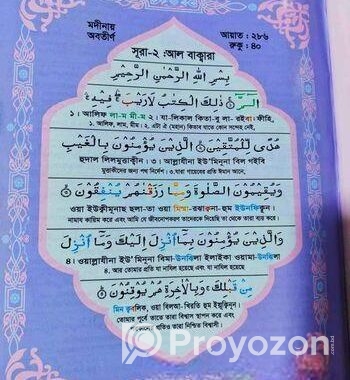 মদীনায়
অবতীর্ণ
আয়াত : ২৮৬
রুকু : ৪০
সূরা-২ : আল বাক্বারা
بِسْمِ اللّٰهِ الرَّحْمٰنِ الرَّحِيْمِ
الٓمّٓ ذٰلِكَ الْكِتٰبُ لَا رَيْبَ فِيْهِ
১। আলিফ লা-ম মী-ম ২। যা-লিকাল কিতা-বু লা- রাইবা ফীহি,
১। আলিফ, লাম, মীম। ২। এটা ঐ (মহান) কিতাব যাতে কোন সন্দেহ নেই,
هُدًى لِّلْمُتَّقِيْنَ الَّذِيْنَ يُؤْمِنُوْنَ بِالْغَيْبِ
হুদাল লিলমুত্তাক্বীন। ৩। আল্লাযীনা ইউ'মিনূনা বিল গাইবি
মুত্তাকীদের জন্য পথ নির্দেশ। ৩। যারা গায়েবের প্রতি ঈমান আনে,
وَيُقِيْمُوْنَ الصَّلٰوةَ وَمِمَّا رَزَقْنٰهُمْ يُنْفِقُوْنَ
ওয়া ইউক্বীমূনাছ ছলা-তা ওয়া মিম্মা-রযাক্বনা-হুম ইউনফিকূন।
নামায কায়িম করে এবং আমি যে জীবনোপকরণ তাদেরকে দিয়েছি তা থেকে তারা ব্যয় করে।
وَالَّذِيْنَ يُؤْمِنُوْنَ بِمَا اُنْزِلَ اِلَيْكَ وَمَا اُنْزِلَ
৪। ওয়াল্লাযীনা ইউ'মিনূনা বিমা উনযিলা ইলাইকা ওয়ামা-উনযিলা
৪। আর তোমার প্রতি যা নাযিল হয়েছে এবং যা নাযিল হয়েছে
مِنْ قَبْلِكَ وَبِالْاٰخِرَةِ هُمْ يُوْقِنُوْنَ
মিন ক্বাবলিক, ওয়া বিল আ-খিরতি হুম ইয়ূক্বিনূন।
তোমার পূর্বে তাতে তারা বিশ্বাস স্থাপন করে এবং
তারা নিশ্চিত বিশ্বাসী।
Proyozon